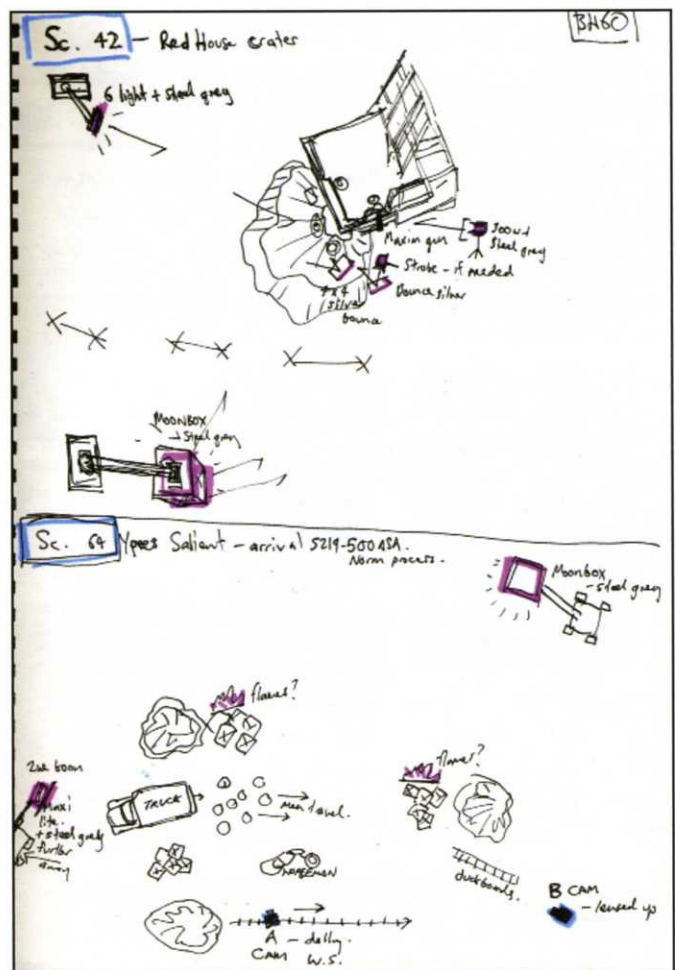 Sc. 42 – Red House crater
BH60
6 light + steel grey
Maxim gun
300w +
Steel grey
Strobe – if needed
4 x 4
silver
bounce
Bounce silver
MOONBOX
→ Steel grey
Sc. 64 Ypres Salient – arrival 5219-500ASA.
Norm process.
Moonbox
– steel grey
flames?
flames?
boom
Maxi
lite.
+ steel grey
further
away
TRUCK
Men travel.
HORSEMAN
duckboards.
B CAM
– lensed up
A – dolly.
CAM W.S.